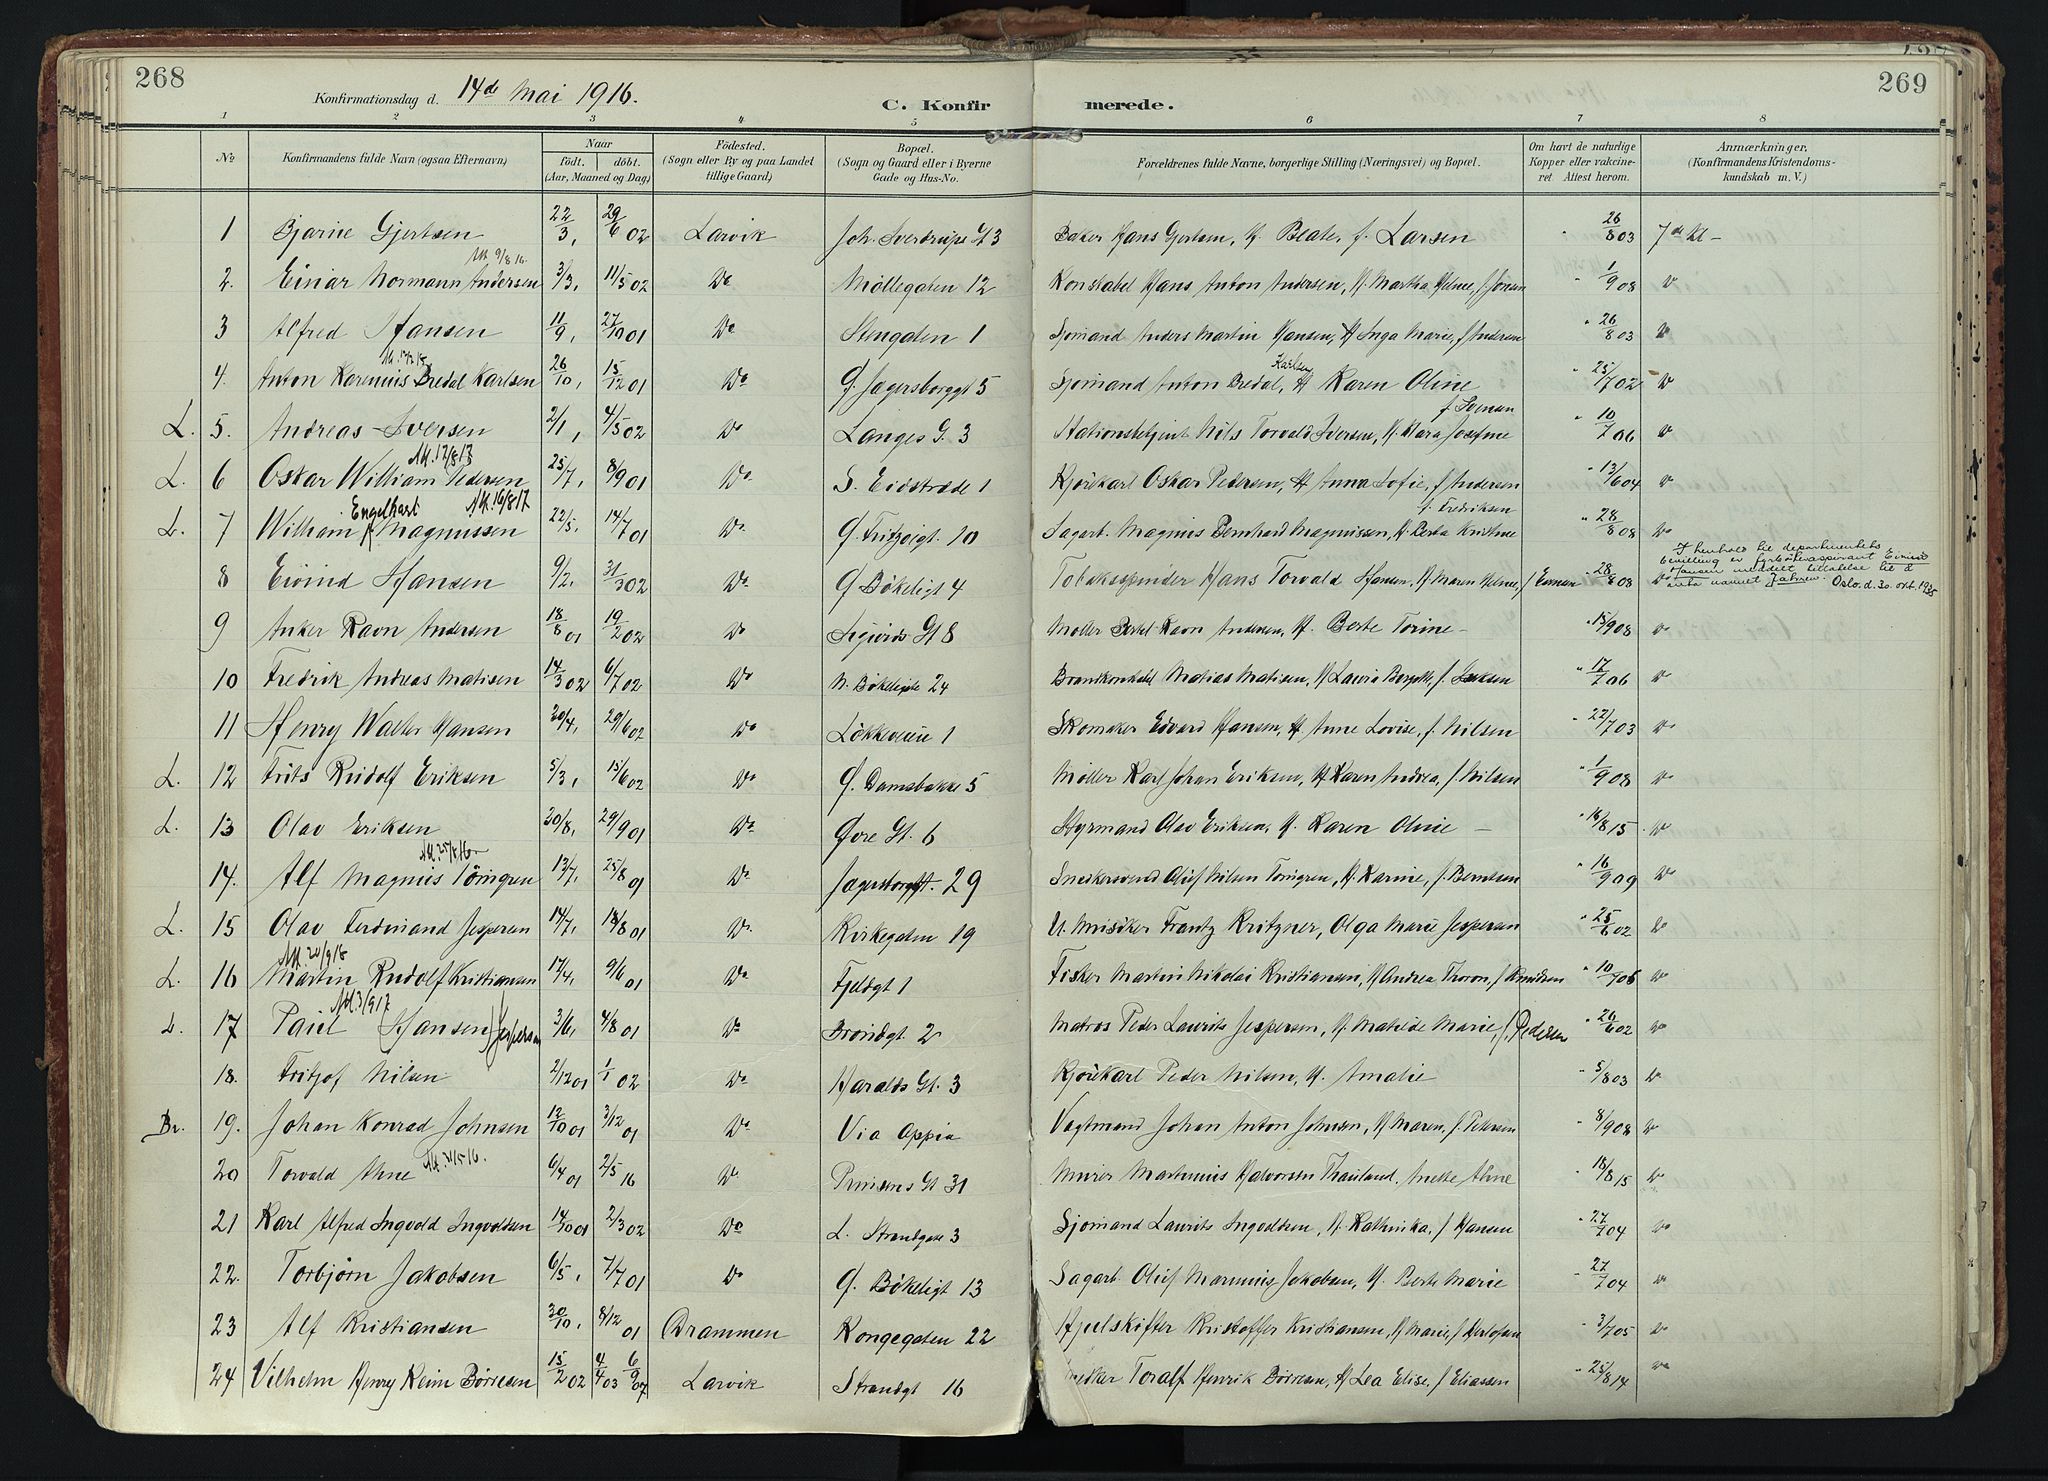 268
Konfirmationsdag d. 14de Mai 1916.
C. Konfir
merede.
269
1 2 3 4 5 6 7 8
No
Konfirmandens fulde Navn (ogsaa Efternavn)
Naar
født. døbt.
(Aar, Maaned og Dag)
Fødested.
(Sogn eller By og paa Landet
tillige Gaard)
Bopæl.
(Sogn og Gaard eller i Byerne
Gade og Hus-No.
Forældrenes fulde Navne, borgerlige Stilling (Næringsvei) og Bopæl.
Om havt de naturlige
Kopper eller vakcine-
ret Attest herom.
Anmærkninger.
(Konfirmandens Kristendoms-
kundskab m. V.)
1 Bjarne Gjertsen 22/3, 29/6 02 Larvik Joh. Sverdrups Gt 3 Baker Hans Gjertsen, H. Beate, f. Larsen " 26/8 03 7de Kl –
Att. 9/8 16.
2. Einar Normann Andersen 3/3, 11/5 02 Do Møllegaten 12 Konstabel Hans Anton Andersen, H. Martha Helene, f. " 1/9 08 Do
3 Alfred Hansen 11/9, 27/10 01 Do Stengaten 1 Sjømand Anders Martin Hansen, H Inga Marie, f Andersen " 26/8 03 Do
4. Anton Karenius Bredal Karlsen 26/10, 15/12 01 Do Ø. Jagersborggt 5 Sjømand Anton Bredal Karlsen, H Karen Oline " 25/7 02 Do
f Svensen
L. 5. Andreas Iversen 2/1, 4/5 02 Do Langes G. 3 Stationsbetjent Nils Torvald Iversen, H. Klara Josefine " 10/7 06 Do
Att. 12/8 17
L. 6 Oskar William Pedersen 25/7, 8/9 01 Do S. Eidstræde 1 Kjørekarl Oskar Pedersen, H Anna Sofie, f Andersen " 13/6 04 Do
Engelhart Att. 16/8 17
f. Fredriksen
L. 7 William Magnussen 22/5, 14/7 01 Do Ø. Fritzøigt. 10 Sagarb. Magnus Bernhard Magnussen, H. Berta Kristine " 28/8 08 Do
I henhold til departementets
bevilling er
Hansen meddelt tilladelse til å
anta navnet Jahren. Oslo. d. 30. okt. 1935
8 Eivind Hansen 9/2, 31/3 02 Do Ø Bøkeligt 4 Tobaksspinder Hans Torvald Hansen, H Maren Helene, f " 28/8 08 Do
9 Anker Ravn Andersen 18/8 01 19/2 02 Do Sigurds Gt 8 Møller Bertel Ravn Andersen, H. Berte Torine – " 15/9 08 Do
10 Fredrik Andreas Matisen 14/3 02 6/7 02 Do N. Bøkeligt 24 Brandkonstabel Matias Matisen, H Laura Borgitte, f. " 17/7 06 Do
11 Henry Walter Hansen 20/4, 29/6 02 Do Løkkeveien 1 Skomaker Edvard Hansen, H Anne Lovise, f. Nilsen " 22/7 03 Do
L. 12 Frits Rudolf Eriksen 5/3, 15/6 02 Do Ø. Damsbakke 5 Møller Karl Johan Eriksen, H Karen Andrea, f. Nilsen " 1/9 08 Do
L. 13 Olav Eriksen 20/8, 29/9 01 Do Øvre Gt. 6 Styrmand Olav Eriksen, H. Karen Oline – " 16/8 15 Do
14. Alf Magnus Törngren 13/7, 25/8 01 Do Jagersborggt. 29 Snekkersvend Oluf Nilsen Törngren, H. Karine, f. Berntsen " 16/9 09 Do
L. 15 Olav Ferdinand Jespersen 14/7, 18/8 01 Do Kirkegaten 19 U. Musiker Frantz Kritzner, Olga Marie Jespersen " 25/6 02 Do
Att. 20/9 18
L. 16 Martin Rudolf Kristiansen 17/4, 9/6 01 Do Fjeldgt 1 Fisker Martin Nikolai Kristiansen, H Andrea " 10/7 06 Do
Att. 3/9 17
L. 17 Paul (Hansen) Jespersen 3/6, 4/8 01 Do Brøndgt. 2 Matros Peder Laurits Jespersen, H. Matilde Marie, f. Pedersen " 26/6 02 Do
18. Fritjof Nilsen 2/12 01 1/1 02 Do Haralds Gt. 3 Kjørekarl Peder Nilsen, H. Amalie " 5/8 03 Do
Br. 19. Johan Konrad Johnsen 12/10 01 3/12 01 Do Via Appia Vagtmand Johan Anton Johnsen, H Maren, f. Petersen " 8/9 08 Do
20 Torvald Ahne 6/4 01 2/5 16 Do Prinsens Gt 31 Murer Martinius Halvorsen Thauland, Anette Ahne " 18/8 15 Do
21 Karl Alfred Ingvald Ingvoldsen 14/10 01 2/3 02 Do L. Strandgate 3 Sjømand Laurits Ingvoldsen, H. Kathinka, f Hansen " 27/7 04 Do
22. Torbjørn Jakobsen 6/5, 7/7 01 Do Ø. Bøkeligt 13 Sagarb. Oluf Marinius Jakobsen, H. Berte Marie " 27/7 04 Do
23 Alf Kristiansen 30/10, 8/12 01 Drammen Kongegaten 22 Hjulskifter Kristoffer Kristiansen, H Marie, f Kristofersen " 3/7 05 Do
24 Vilhelm Henry Reim Børresen 15/2 02 4/4 03 6/9 07 Larvik Strandgt 16 Snedker Toralf Henrik Børresen, H Lea Elise, f Eliassen " 25/8 14 Do